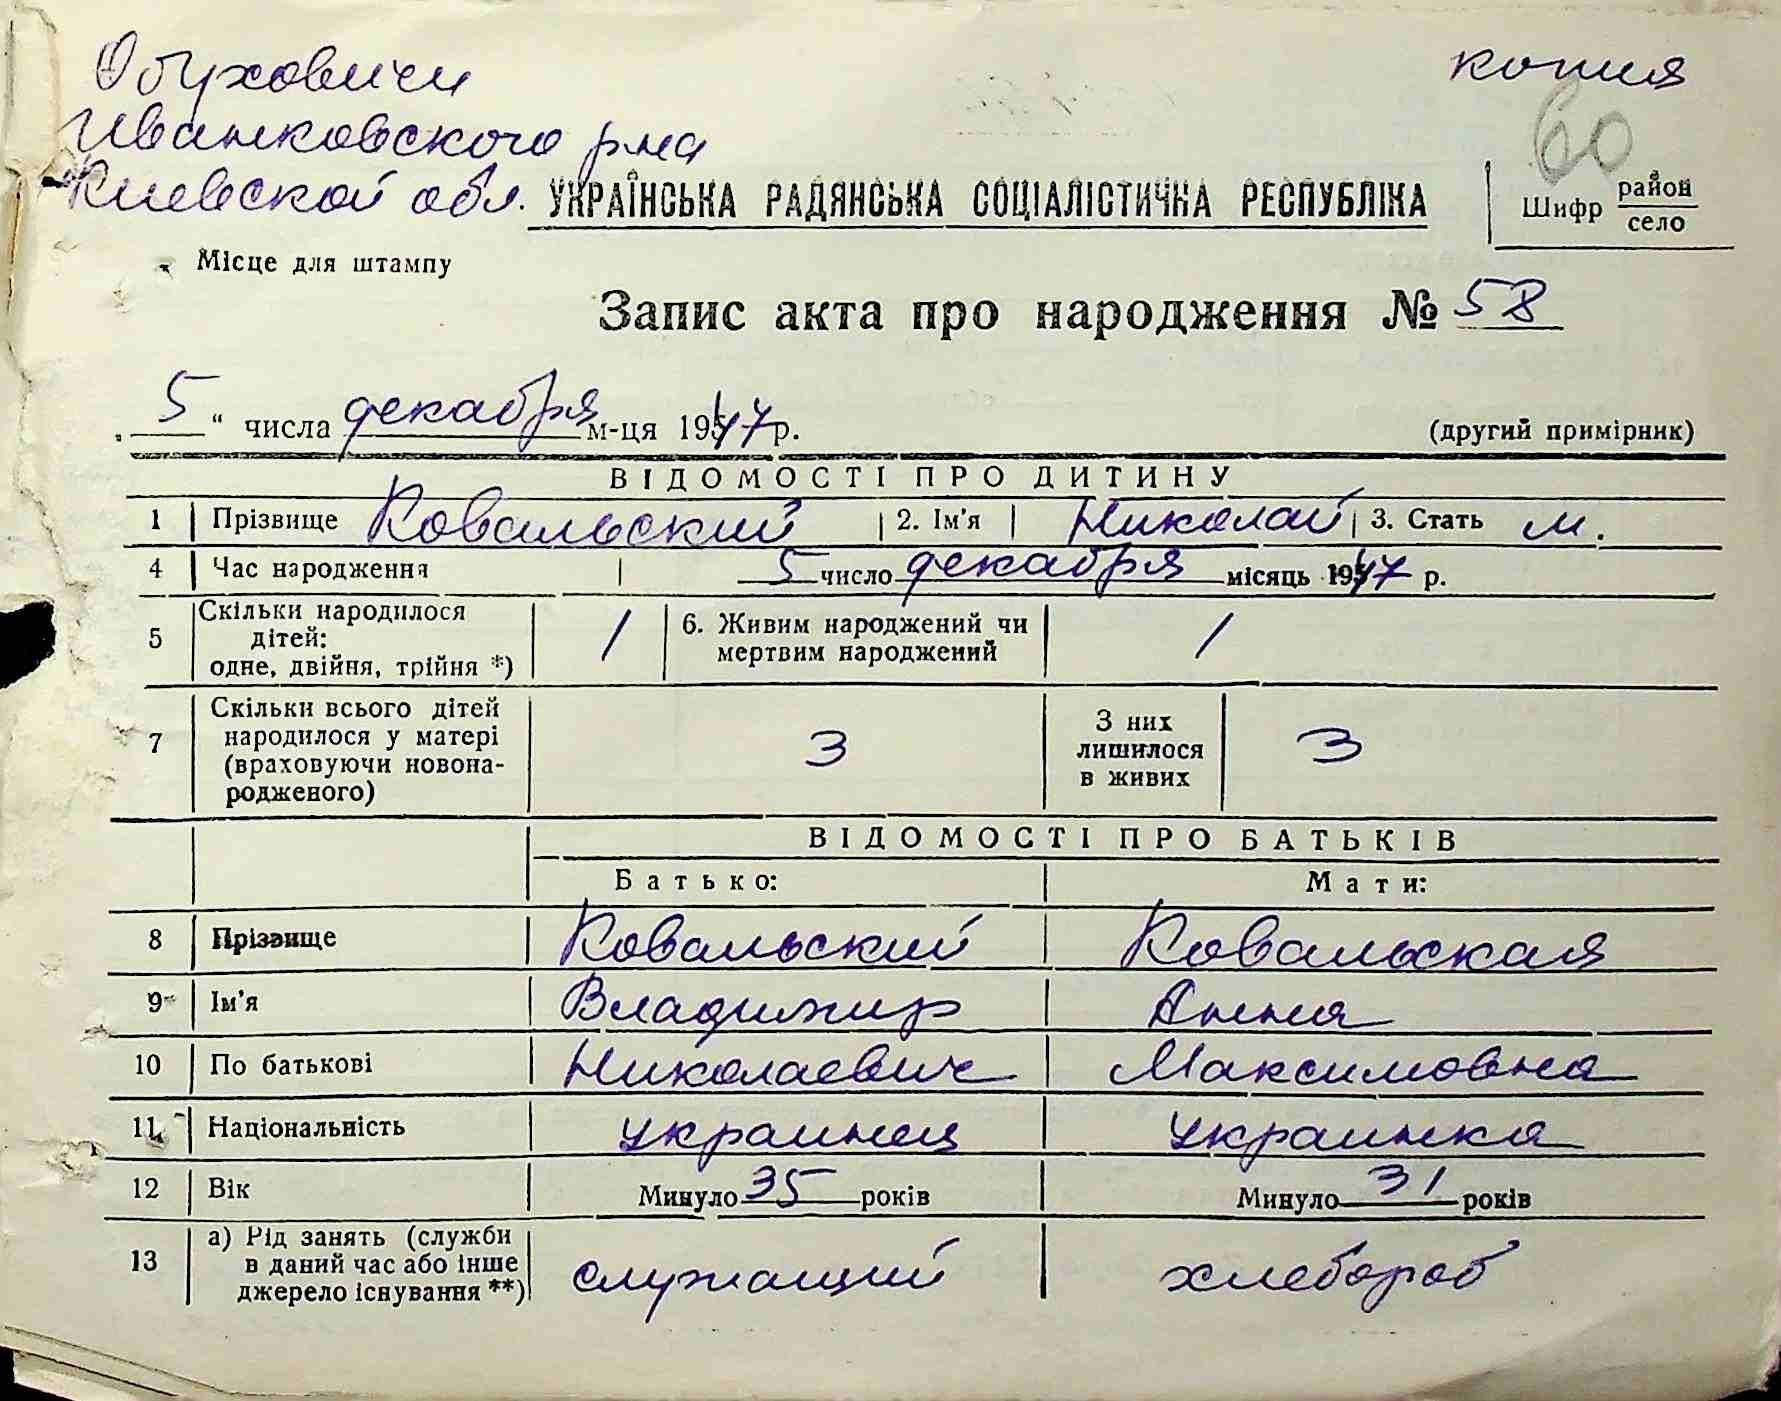 Обуховичи
Иванковского р-на
Киевской обл.
копия
60
УКРАЇНСЬКА РАДЯНСЬКА СОЦІАЛІСТИЧНА РЕСПУБЛІКА
Шифр район
село
Місце для штампу
Запис акта про народження № 58
„ 5 “ числа декабря м-ця 1947 р.
(другий примірник)
ВІДОМОСТІ ПРО ДИТИНУ
1 Прізвище Ковальский 2. Ім'я Николай 3. Стать м.
4 Час народження 5 число декабря місяць 1947 р.
5 Скільки народилося дітей: одне, двійня, трійня *) 1 6. Живим народжений чи мертвим народжений 1
7 Скільки всього дітей народилося у матері (враховуючи новонародженого) 3 З них лишилося в живих 3
ВІДОМОСТІ ПРО БАТЬКІВ
Батько: Мати:
8 Прізвище Ковальский Ковальская
9 Ім'я Владимир Анна
10 По батькові Николаевич Максимовна
11 Національність украинец украинка
12 Вік Минуло 35 років Минуло 31 років
13 а) Рід занять (служби в даний час або інше джерело існування **) служащий хлебороб